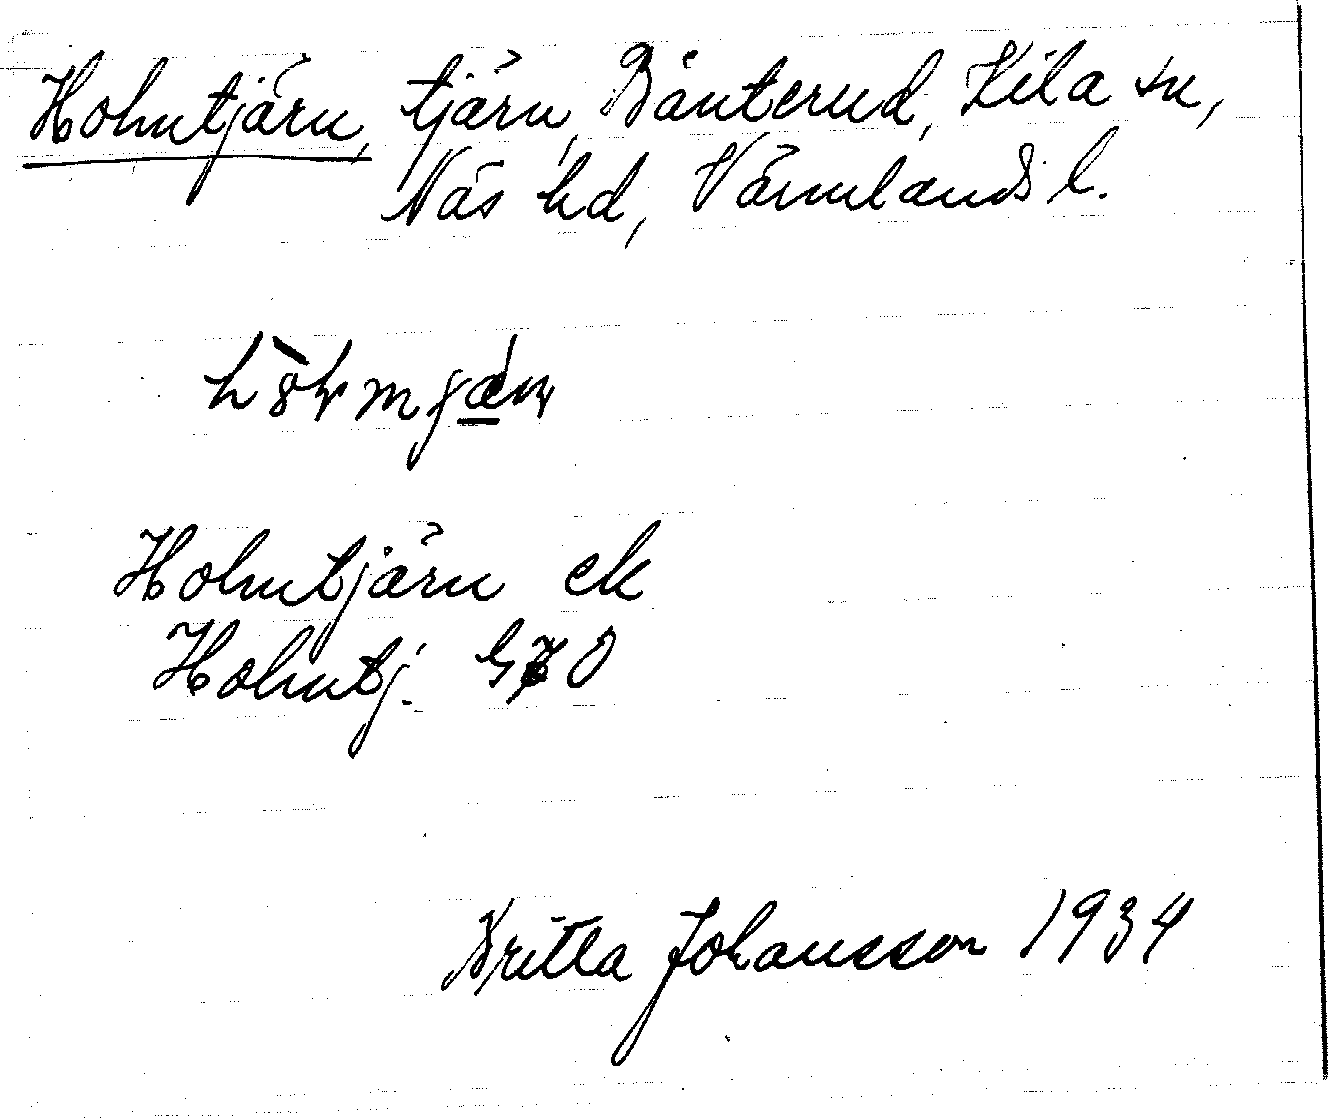 Holmtjärn, tjärn, Bånterud, Kila sn,
Näs hd, Värmlands l.
Holmtjärn ek
Holmtj. GKO
Britta Johansson 1934